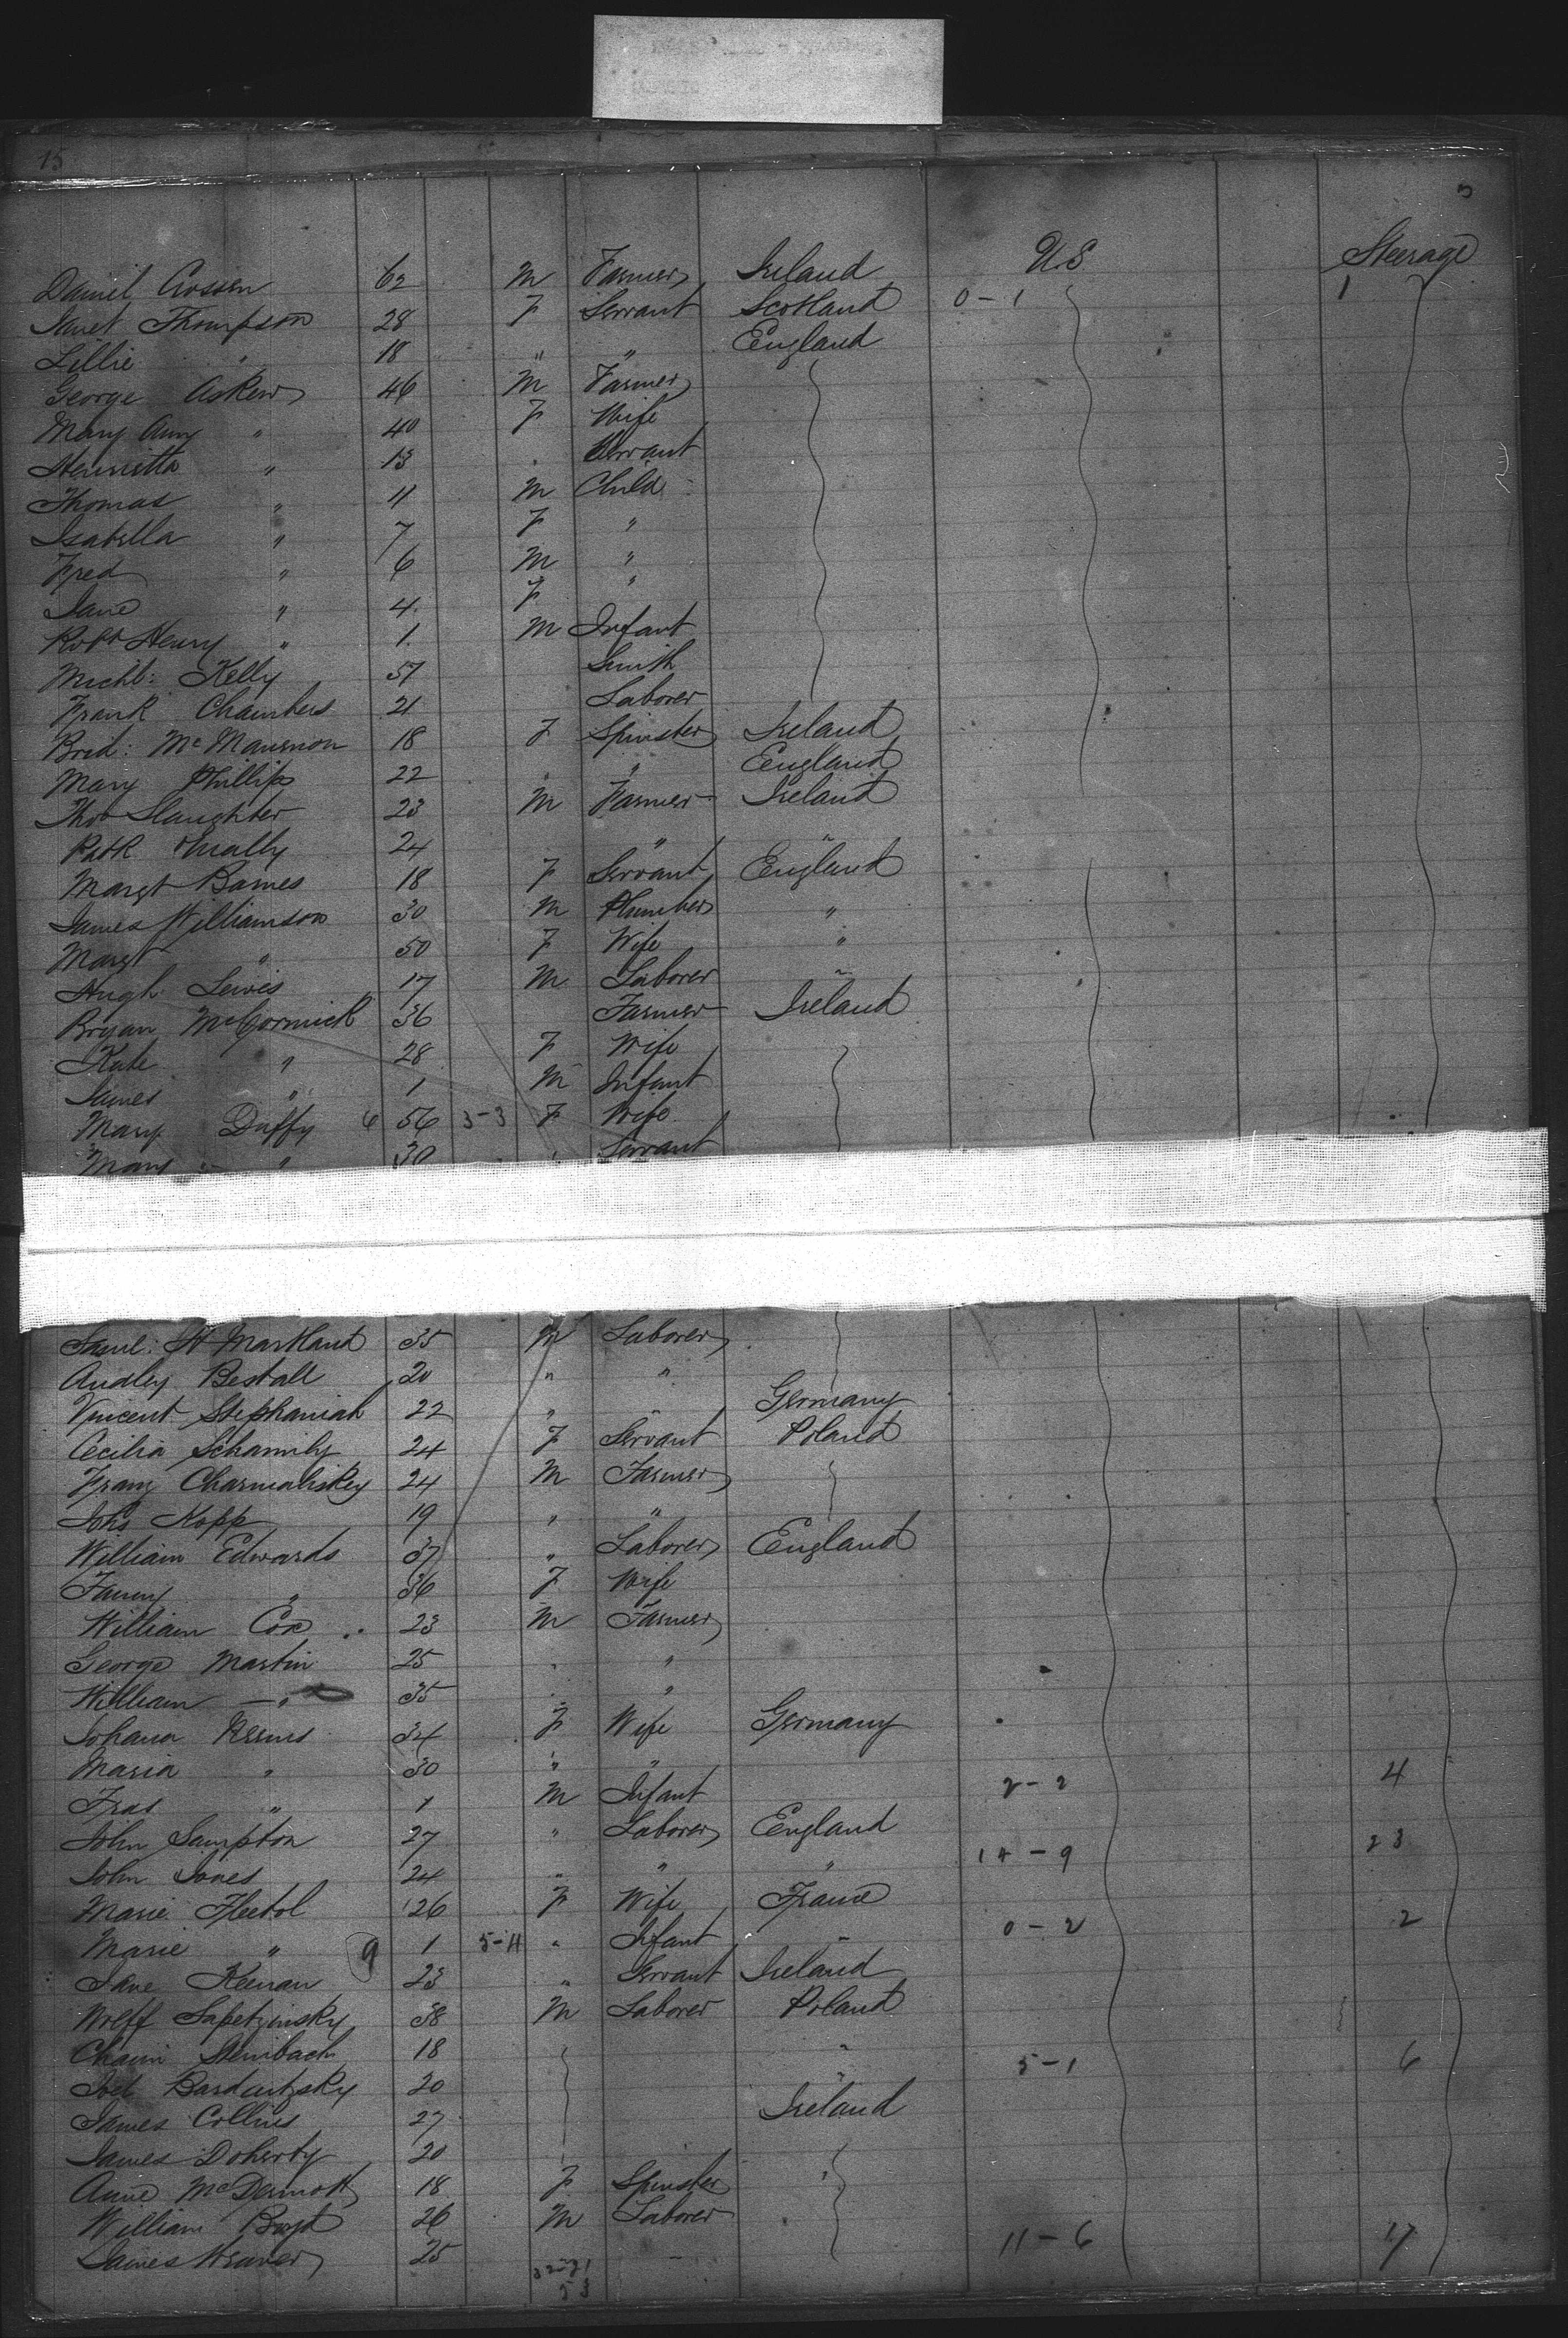 15
Daniel Crossen 62 M Farmer Ireland U.S Steerage
Janet Thompson 28 F Servant Scotland 0-1 1
Lillie " 18 " " England
George Askew 46 M Farmer
Mary Amy " 40 F Wife
Henrietta " 13 . Servant
Thomas " 11 M Child
Isabella " 7 F "
Fred " 6 M "
Jane " 4 F "
Robt Henry " 1 M Infant
Michl: Kelly 57 Smith
Frank Chambers 21 Laborer
Brid: 18 F Spinster Ireland
Mary Phillips 22 " " England
Thos Slaughter 23 M Farmer Ireland
Patk 24 " "
Margt Barnes 18 F Servant England
James Williamson 30 M Plumber "
Margt " 50 F Wife "
Hugh Lewis 17 M Laborer "
Bryan McCormick 36 Farmer Ireland
Kate " 28 F Wife
James " 1 M Infant
Mary Duffy 6 56 3-3 F Wife
Mary " 30 . Servant
Saml: H Markland 35 M Laborer
Audley Bestall 20 " "
Vincent Stephaniah 22 " " Germany
Cecilia 24 F Servant Poland
Franz 24 M Farmer
Johs Kopp 19 " "
William Edwards 37 " Laborer England
Fanny " 36 F Wife
William Cox 23 M Farmer
George Martin 25 . "
William — " 35 . "
Johana 34 F Wife Germany
Maria " 30 " "
Fras " 1 M Infant 2-2 4
John Sampton 27 " Laborer England
John Jones 24 " " " 14-9 23
Marie 26 F Wife France
Marie " 9 1 5-11 " Infant " 0-2 2
Jane Keenan 23 " Servant Ireland
Wolff Sapetzinsky 38 M Laborer Poland
Chaim Steinbach 18 " 5-1 6
Joel 20 "
James Collins 27 Ireland
James Doherty 20
Anne McDermott 18 F Spinster
William Boyd 26 M Laborer
James Weaver 25 11-6 17
53